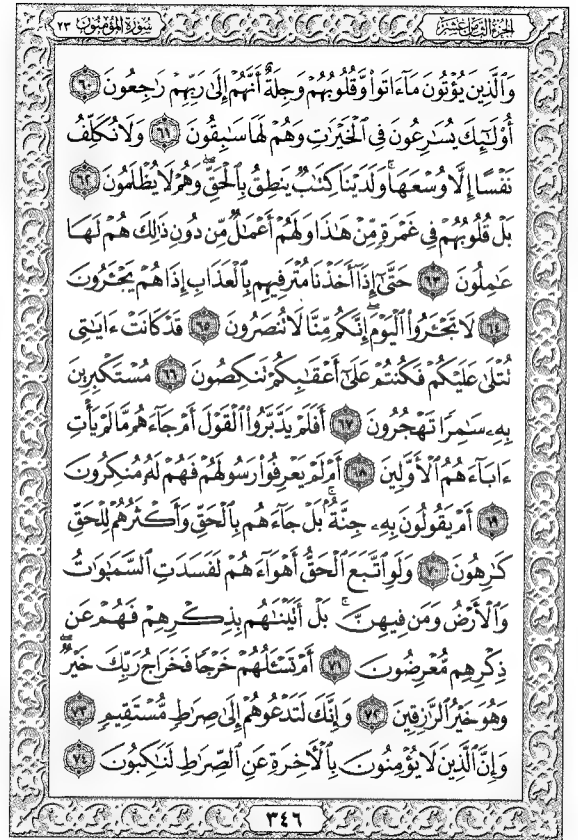 الجزء الثامن عشر
سورة المؤمنون ٢٣
وَالَّذِينَ يُؤْتُونَ مَآءَاتَوا۟ وَّقُلُوبُهُمْ وَجِلَةٌ أَنَّهُمْ إِلَىٰ رَبِّهِمْ رَٰجِعُونَ ٦٠
أُو۟لَـٰٓئِكَ يُسَـٰرِعُونَ فِى ٱلْخَيْرَٰتِ وَهُمْ لَهَا سَـٰبِقُونَ ٦١ وَلَا نُكَلِّفُ
نَفْسًا إِلَّا وُسْعَهَا ۚ وَلَدَيْنَا كِتَـٰبٌ يَنطِقُ بِٱلْحَقِّ ۖ وَهُمْ لَا يُظْلَمُونَ ٦٢
بَلْ قُلُوبُهُمْ فِى غَمْرَةٍ مِّنْ هَـٰذَا وَلَهُمْ أَعْمَـٰلٌ مِّن دُونِ ذَٰلِكَ هُمْ لَهَا
عَـٰمِلُونَ ٦٣ حَتَّىٰٓ إِذَآ أَخَذْنَا مُتْرَفِيهِم بِٱلْعَذَابِ إِذَا هُمْ يَجْـَٔرُونَ
٦٤ لَا تَجْـَٔرُوا۟ ٱلْيَوْمَ ۖ إِنَّكُم مِّنَّا لَا تُنصَرُونَ ٦٥ قَدْ كَانَتْ ءَايَـٰتِى
تُتْلَىٰ عَلَيْكُمْ فَكُنتُمْ عَلَىٰٓ أَعْقَـٰبِكُمْ تَنكِصُونَ ٦٦ مُسْتَكْبِرِينَ
بِهِۦ سَـٰمِرًا تَهْجُرُونَ ٦٧ أَفَلَمْ يَدَّبَّرُوا۟ ٱلْقَوْلَ أَمْ جَآءَهُم مَّا لَمْ يَأْتِ
ءَابَآءَهُمُ ٱلْأَوَّلِينَ ٦٨ أَمْ لَمْ يَعْرِفُوا۟ رَسُولَهُمْ فَهُمْ لَهُۥ مُنكِرُونَ
٦٩ أَمْ يَقُولُونَ بِهِۦ جِنَّةٌۢ ۚ بَلْ جَآءَهُم بِٱلْحَقِّ وَأَكْثَرُهُمْ لِلْحَقِّ
كَـٰرِهُونَ ٧٠ وَلَوِ ٱتَّبَعَ ٱلْحَقُّ أَهْوَآءَهُمْ لَفَسَدَتِ ٱلسَّمَـٰوَٰتُ
وَٱلْأَرْضُ وَمَن فِيهِنَّ ۚ بَلْ أَتَيْنَـٰهُم بِذِكْرِهِمْ فَهُمْ عَن
ذِكْرِهِم مُّعْرِضُونَ ٧١ أَمْ تَسْـَٔلُهُمْ خَرْجًا فَخَرَاجُ رَبِّكَ خَيْرٌ ۖ
وَهُوَ خَيْرُ ٱلرَّٰزِقِينَ ٧٢ وَإِنَّكَ لَتَدْعُوهُمْ إِلَىٰ صِرَٰطٍ مُّسْتَقِيمٍ ٧٣
وَإِنَّ ٱلَّذِينَ لَا يُؤْمِنُونَ بِٱلْـَٔاخِرَةِ عَنِ ٱلصِّرَٰطِ لَنَـٰكِبُونَ ٧٤
٣٤٦